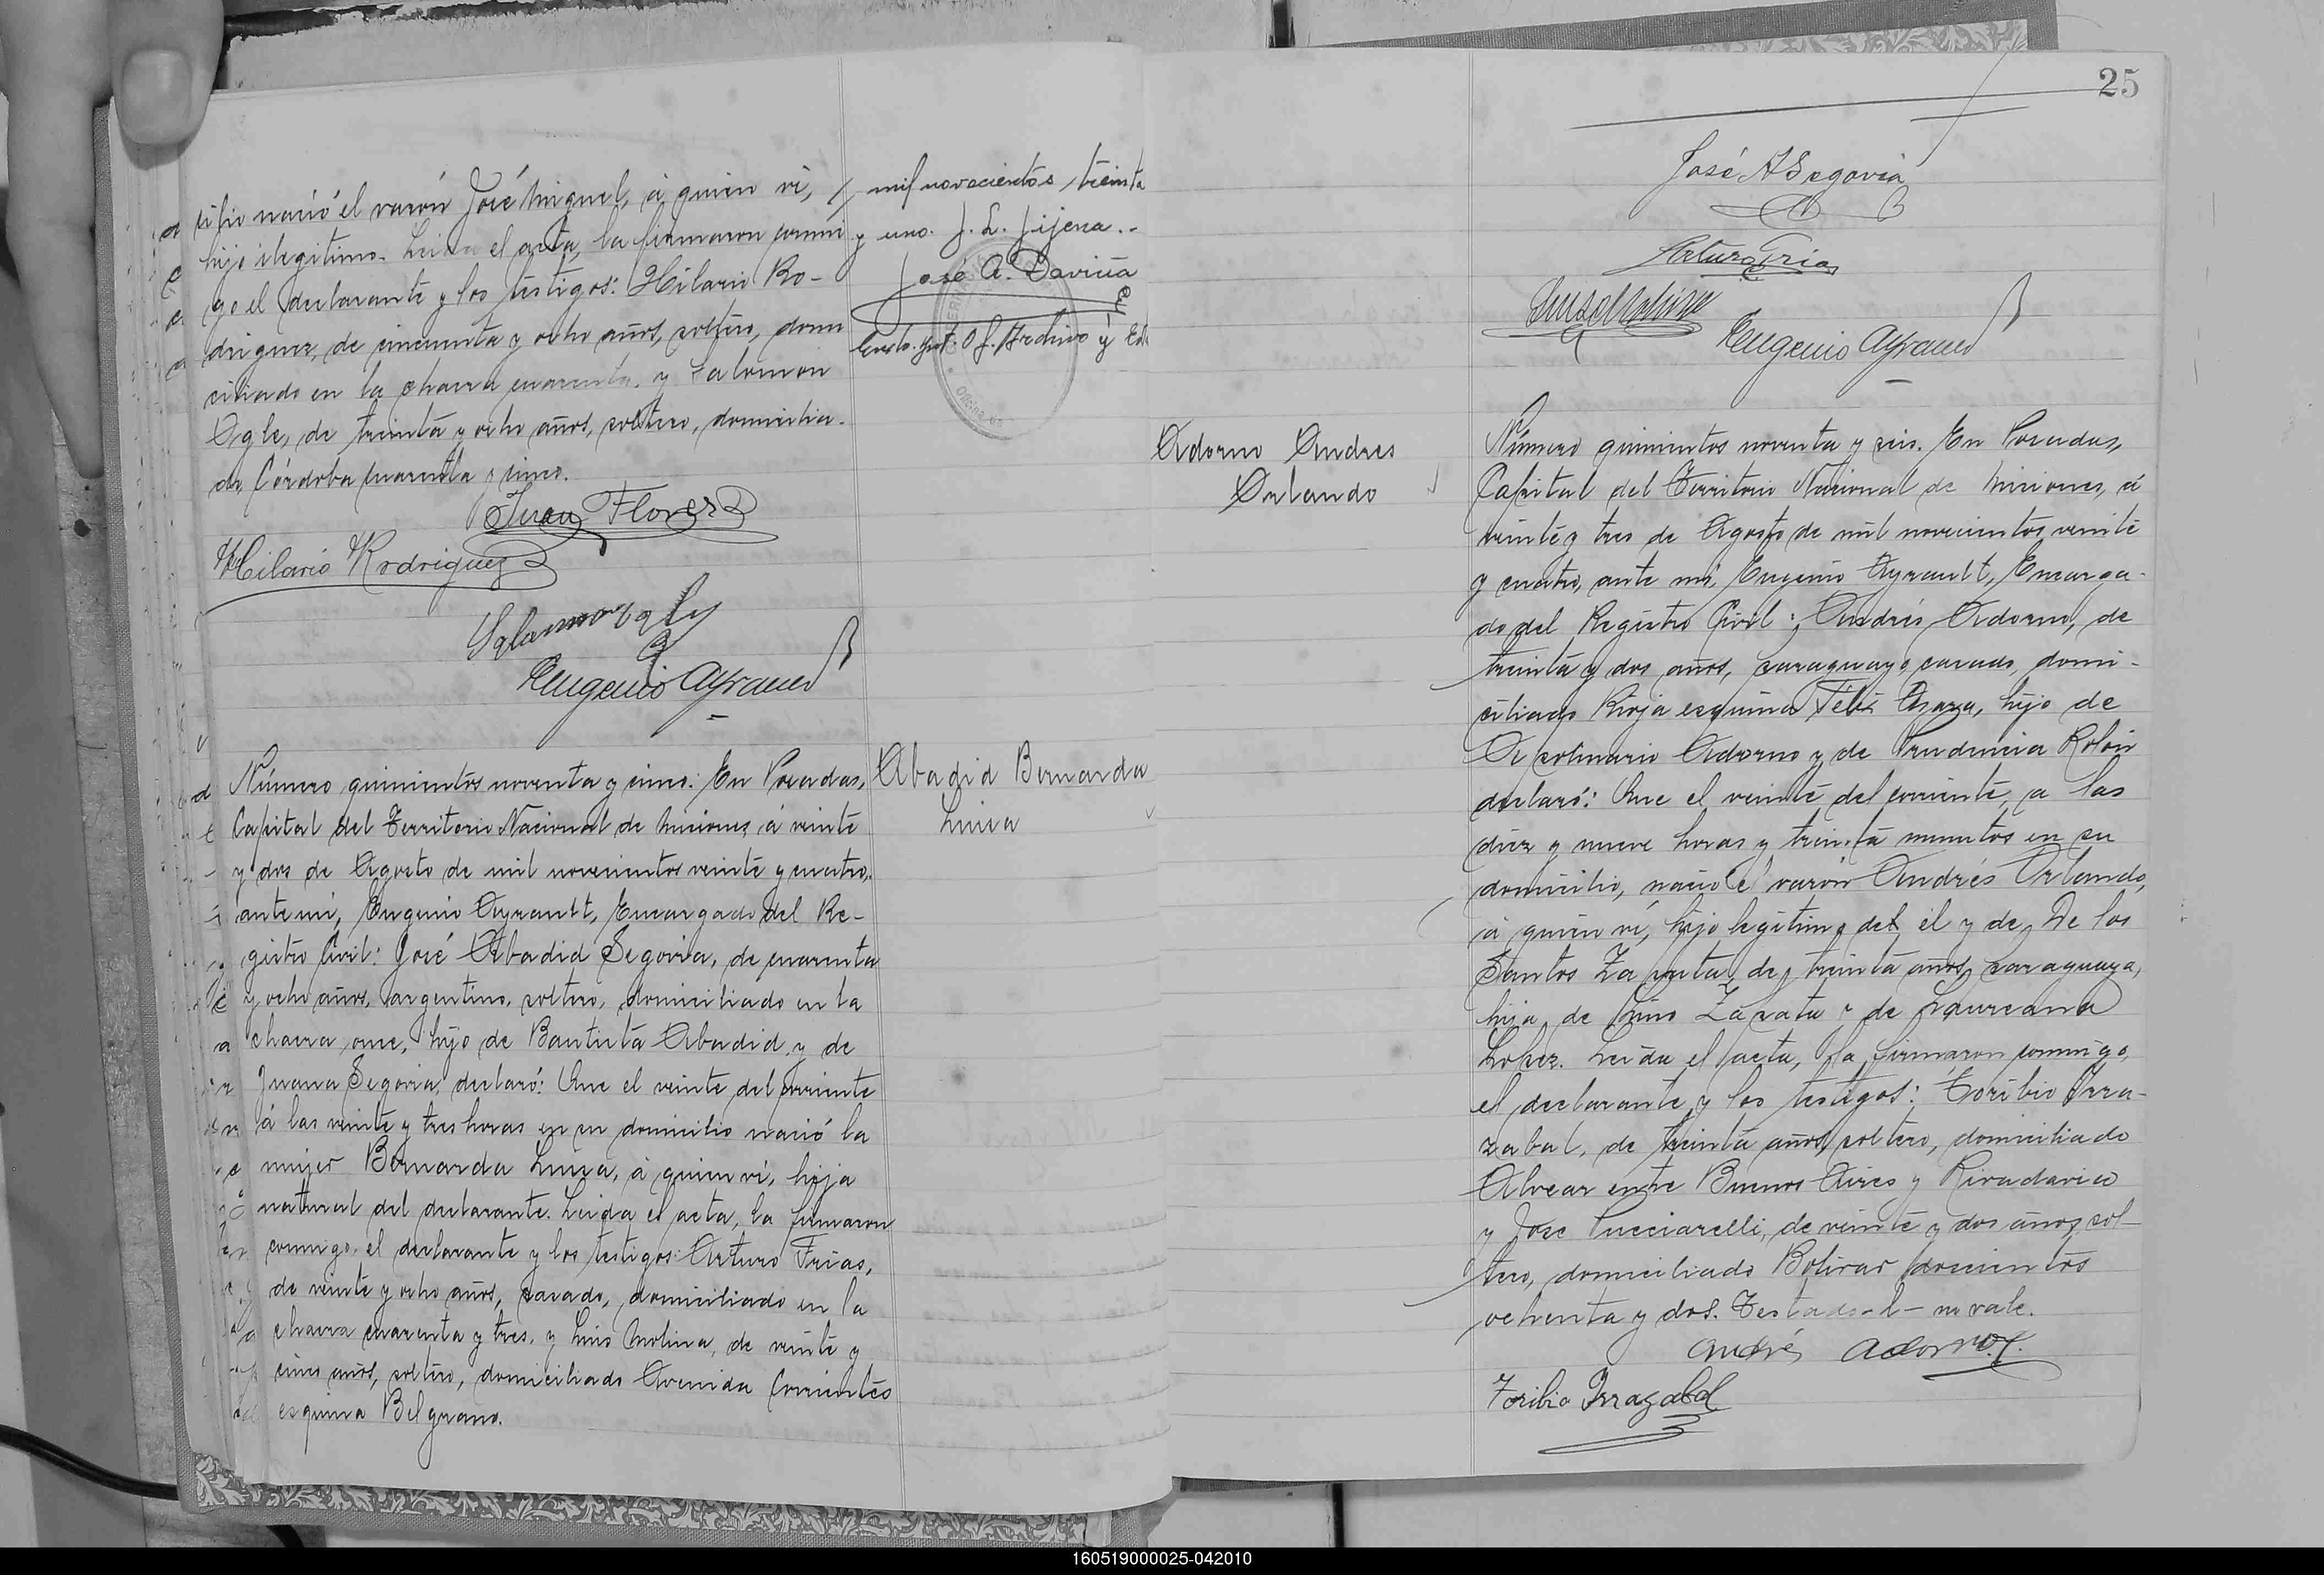 cilio nació el varón José Miguel, á quien ví,
hijo ilegítimo. Leida el acta, la firmaron conmi
go el declarante y los testigos: Hilario Ro-
driguez, de cincuenta y ocho años, soltero, domi
ciliado en la chacra cuarenta y Salomon
Ogle, de treinta y ocho años, soltero, domicilia-
do, Córdoba cuarenta y cinco.
Juan Flores
Hilario Rodriguez
Eugenio Ayrault
mil novecientos treinta
y uno. J. L. Jijena.-
José A. Daviña
Número quinientos noventa y cinco: En Posadas,
Capital del Territorio Nacional de Misiones, á veinte
y dos de Agosto de mil novecientos veinte y cuatro,
ante mí, Eugenio Ayrault, Encargado del Re-
gistro Civil: José Abadid Segovia, de cuarenta
y ocho años, argentino, soltero, domiciliado en la
chacra once, hijo de Bautista Abadid y de
Juana Segovia, declaró: Que el veinte del corriente
á las veinte y tres horas en su domicilio nació la
mujer Bernarda Luisa, á quien ví, hija
natural del declarante. Leida el acta, la firmaron
conmigo, el declarante y los testigos: Arturo Frias,
de veinte y ocho años, casado, domiciliado en la
chacra cuarenta y tres, y Luis Molina, de veinte y
cinco años, soltero, domiciliado Avenida Corrientes
esquina Belgrano.
Abadid Bernarda
Luisa
25
José A Segovia
Arturo Frias
Luis Molina
Eugenio Ayrault
Adorno Andres
Orlando
Número quinientos noventa y seis. En Posadas,
Capital del Territorio Nacional de Misiones, á
veinte y tres de Agosto de mil novecientos veinte
y cuatro, ante mí, Eugenio Ayrault, Encarga-
do del Registro Civil: Andrés Adorno, de
treinta y dos años, paraguayo, casado, domi-
ciliado Rioja esquina Félix Azara, hijo de
Apolinario Adorno y de Prudencia Rolón
declaró: Que el veinte del corriente, a las
diez y nueve horas y treinta minutos en su
domicilio, nació el varón Andrés Orlando,
á quien ví, hijo legítimo del él y de De los
Santos Zarata, de treinta años, paraguaya,
hija de Lino Zarata y de Laureana
Lopez. Leida el acta, la firmaron conmigo,
el declarante y los testigos: Toribio Irra-
zabal, de treinta años, soltero, domiciliado
Alvear entre Buenos Aires y Rivadavia
y José Pucciarelli, de veinte y dos años, sol-
tero, domiciliado Bolivar doscientos
ochenta y dos. Testado-l- no vale.
Andrés Adorno
Toribio Irrazabal
160519000025-042010